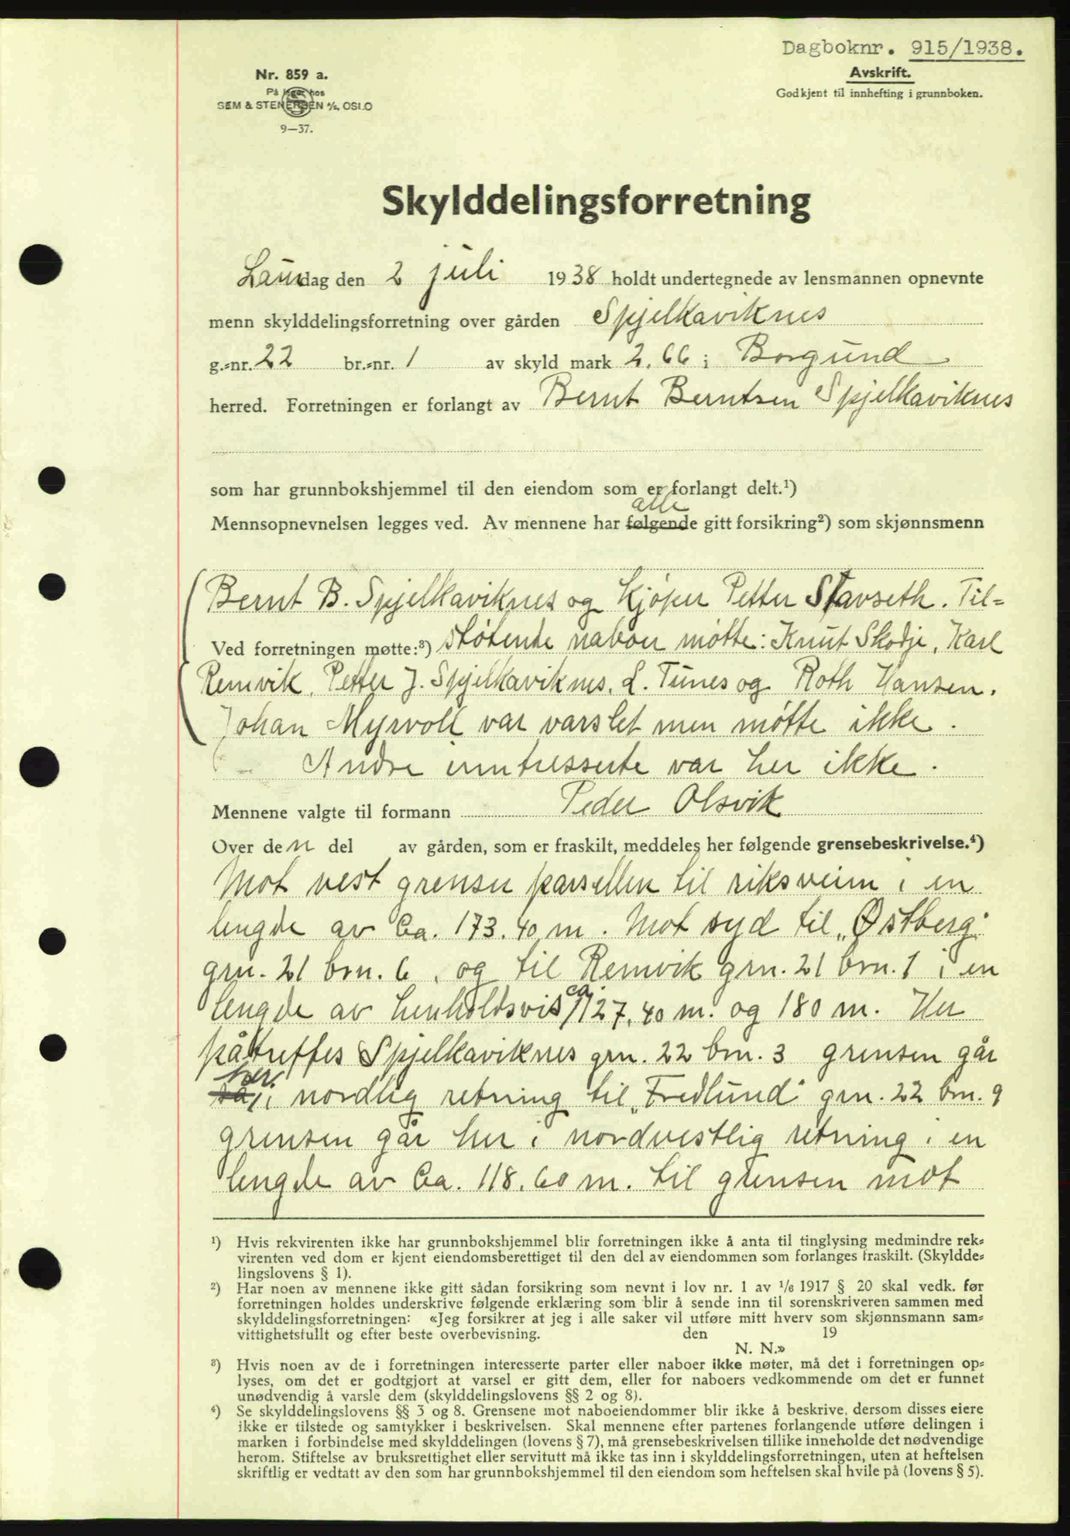 Dagboknr. 915/1938.
Avskrift.
Godkjent til innhefting i grunnboken.
Nr. 859 a.
På lager hos
SEM & STENERSEN A/S, OSLO
9—37.
Skylddelingsforretning
Laurdag den 2 juli 1938 holdt undertegnede av lensmannen opnevnte
menn skylddelingsforretning over gården Spjelkaviknes
g.-nr. 22 br.-nr. 1 av skyld mark 2,66 i Borgund
herred. Forretningen er forlangt av Bernt Berntsen Spjelkaviknes
som har grunnbokshjemmel til den eiendom som er forlangt delt.¹)
alle
Mennsopnevnelsen legges ved. Av mennene har følgende gitt forsikring²) som skjønnsmenn
Bernt B. Spjelkaviknes og kjøper Petter Stavseth. Til-
Ved forretningen møtte:³) støtende naboer møtte: Knut Skodje, Karl
Remvik, Petter J. Spjelkaviknes, L. Tunes og Roth Hansen.
Johan Myrvoll var varslet men møtte ikke.
Andre inntresserte var her ikke.
Mennene valgte til formann Peder Olsvik
Over den del av gården, som er fraskilt, meddeles her følgende grensebeskrivelse.⁴)
Mot vest grenser parsellen til riksveien i en
lengde av Ca. 173.40 m. Mot syd til "Østberg"
grn. 21 brn. 6, og til Remvik grn. 21 brn. 1 i en
lengde av henholdsvis ca. 127,40 m. og 180 m. Her
påtreffes Spjelkaviknes grn. 22 brn. 3 grensen går
her
så i nordlig retning til "Fredlund" grn. 22 brn. 9
grensen går her i nordvestlig retning i en
lengde av Ca. 118.60 m. til grensen mot
¹) Hvis rekvirenten ikke har grunnbokshjemmel blir forretningen ikke å anta til tinglysing medmindre rek-
virenten ved dom er kjent eiendomsberettiget til den del av eiendommen som forlanges fraskilt. (Skyldde-
lingslovens § 1).
²) Har noen av mennene ikke gitt sådan forsikring som nevnt i lov nr. 1 av 1/6 1917 § 20 skal vedk. før
forretningen holdes underskrive følgende erklæring som blir å sende inn til sorenskriveren sammen med
skylddelingsforretningen: «Jeg forsikrer at jeg i alle saker vil utføre mitt hverv som skjønnsmann sam-
vittighetsfullt og efter beste overbevisning. den 19
N. N.»
³) Hvis noen av de i forretningen interesserte parter eller naboer ikke møter, må det i forretningen op-
lyses, om det er godtgjort at varsel er gitt dem, eller for naboers vedkommende om det er funnet
unødvendig å varsle dem (skylddelingslovens §§ 2 og 8).
⁴) Se skylddelingslovens §§ 3 og 8. Grensene mot naboeiendommer blir ikke å beskrive, dersom disses eiere
ikke er tilstede og samtykker i beskrivelsen. Skal mennene efter partenes forlangende utføre delingen i
marken i forbindelse med skylddelingen (lovens § 7), må grensebeskrivelsen tillike inneholde det nødvendige
herom. Stiftelse av bruksrettighet eller servitutt må ikke tas inn i skylddelingsforretningen, uten at heftelsen
skriftlig er vedtatt av den som har grunnbokshjemmel til den eiendom som heftelsen skal hvile på (lovens § 5).